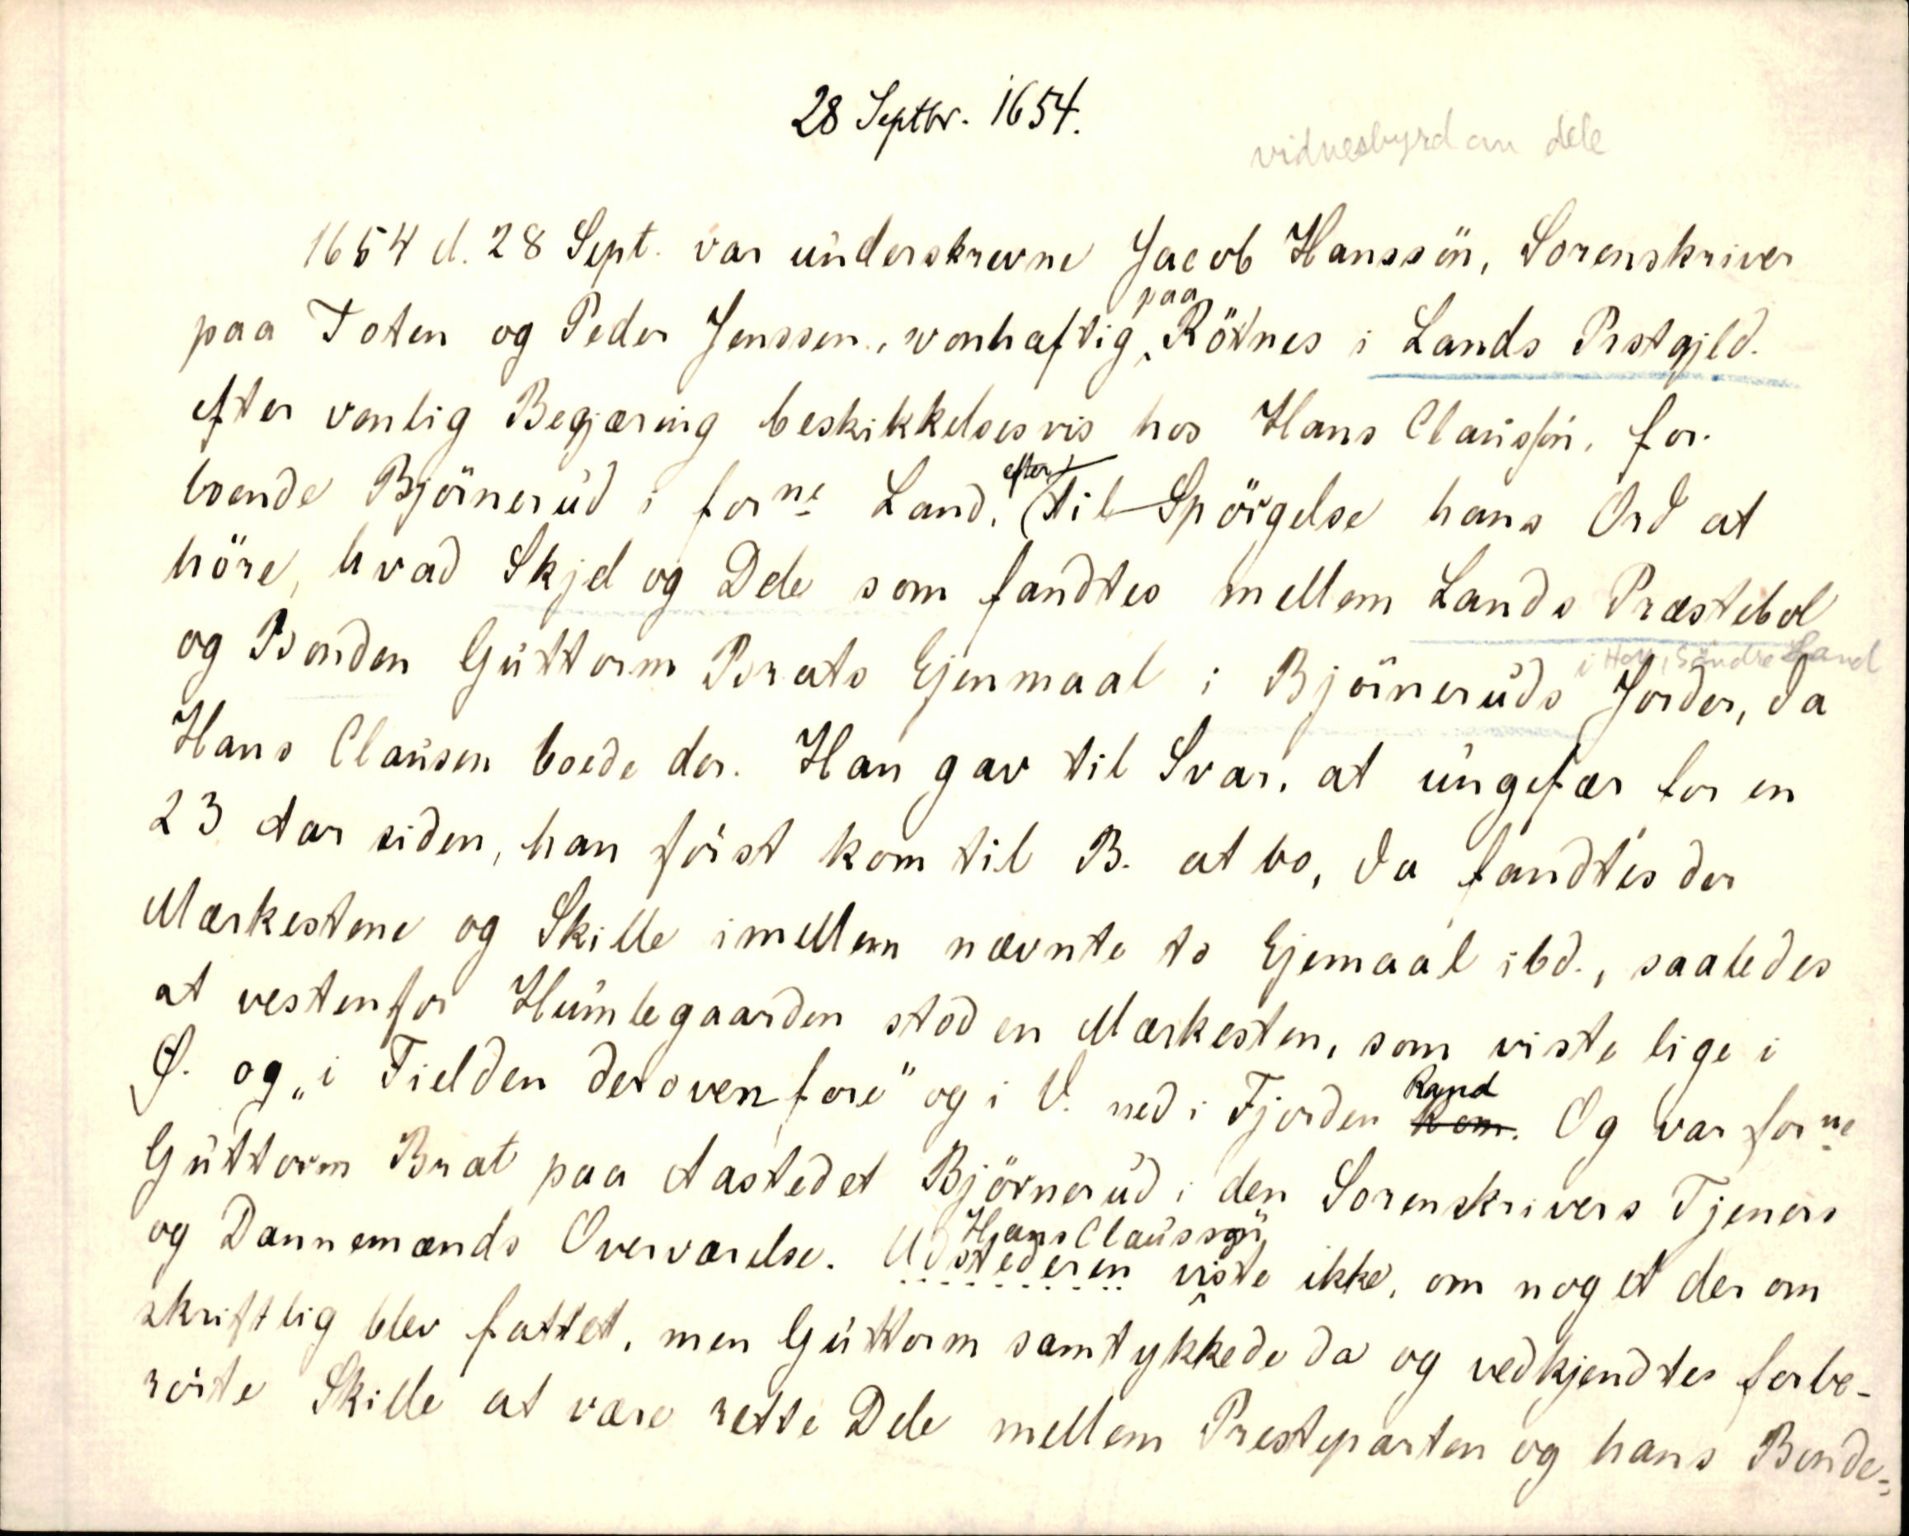 28 Septbr. 1654.
vidnesbyrd om dele
1654 d. 28 Sept. var underskrevne Jacob Hanssön, Sorenskriver
paa Toten og Peder Jenssen, vonhaftig paa Rötnes i Lands Prstgjld.
efter venlig Begjæring beskikkelsesvis hos Hans Claussön, for.
boende Björnerud i forne Land, efter (til Spörgelse hans Ord at
höre, hvad Skjel og Dele som fandtes mellem Lands Præstebol
i Hov, Söndre Land
og Bonden Guttorm Brats Ejenmaal i Björneruds Jorder, da
Hans Clausen boede der. Han gav til Svar, at ungefær for en
23 Aar siden, han först kom til B. at bo, da fandtes der
Mærkestene og Skille imellem nævnte to Ejemaal ibd., saaledes
at vestenfor Humlegaarden stod en Mærkesten, som viste lige i
Ø. og "i Fielden derovenfore" og i V. ned i Fjorden Rand Kom. Og var forne
Guttorm Brat paa Aastedet Björnerud i den Sorenskrivers Tjeners
og Dannemænds Overværelse. Udstederen Hans Claussøn viste ikke, om noget der om
skriftlig blev fattet, men Guttorm samtykkede da og vedkjendtes forbe-
rörte Skille at være rette Dele mellem Presteparten og hans Bonde-